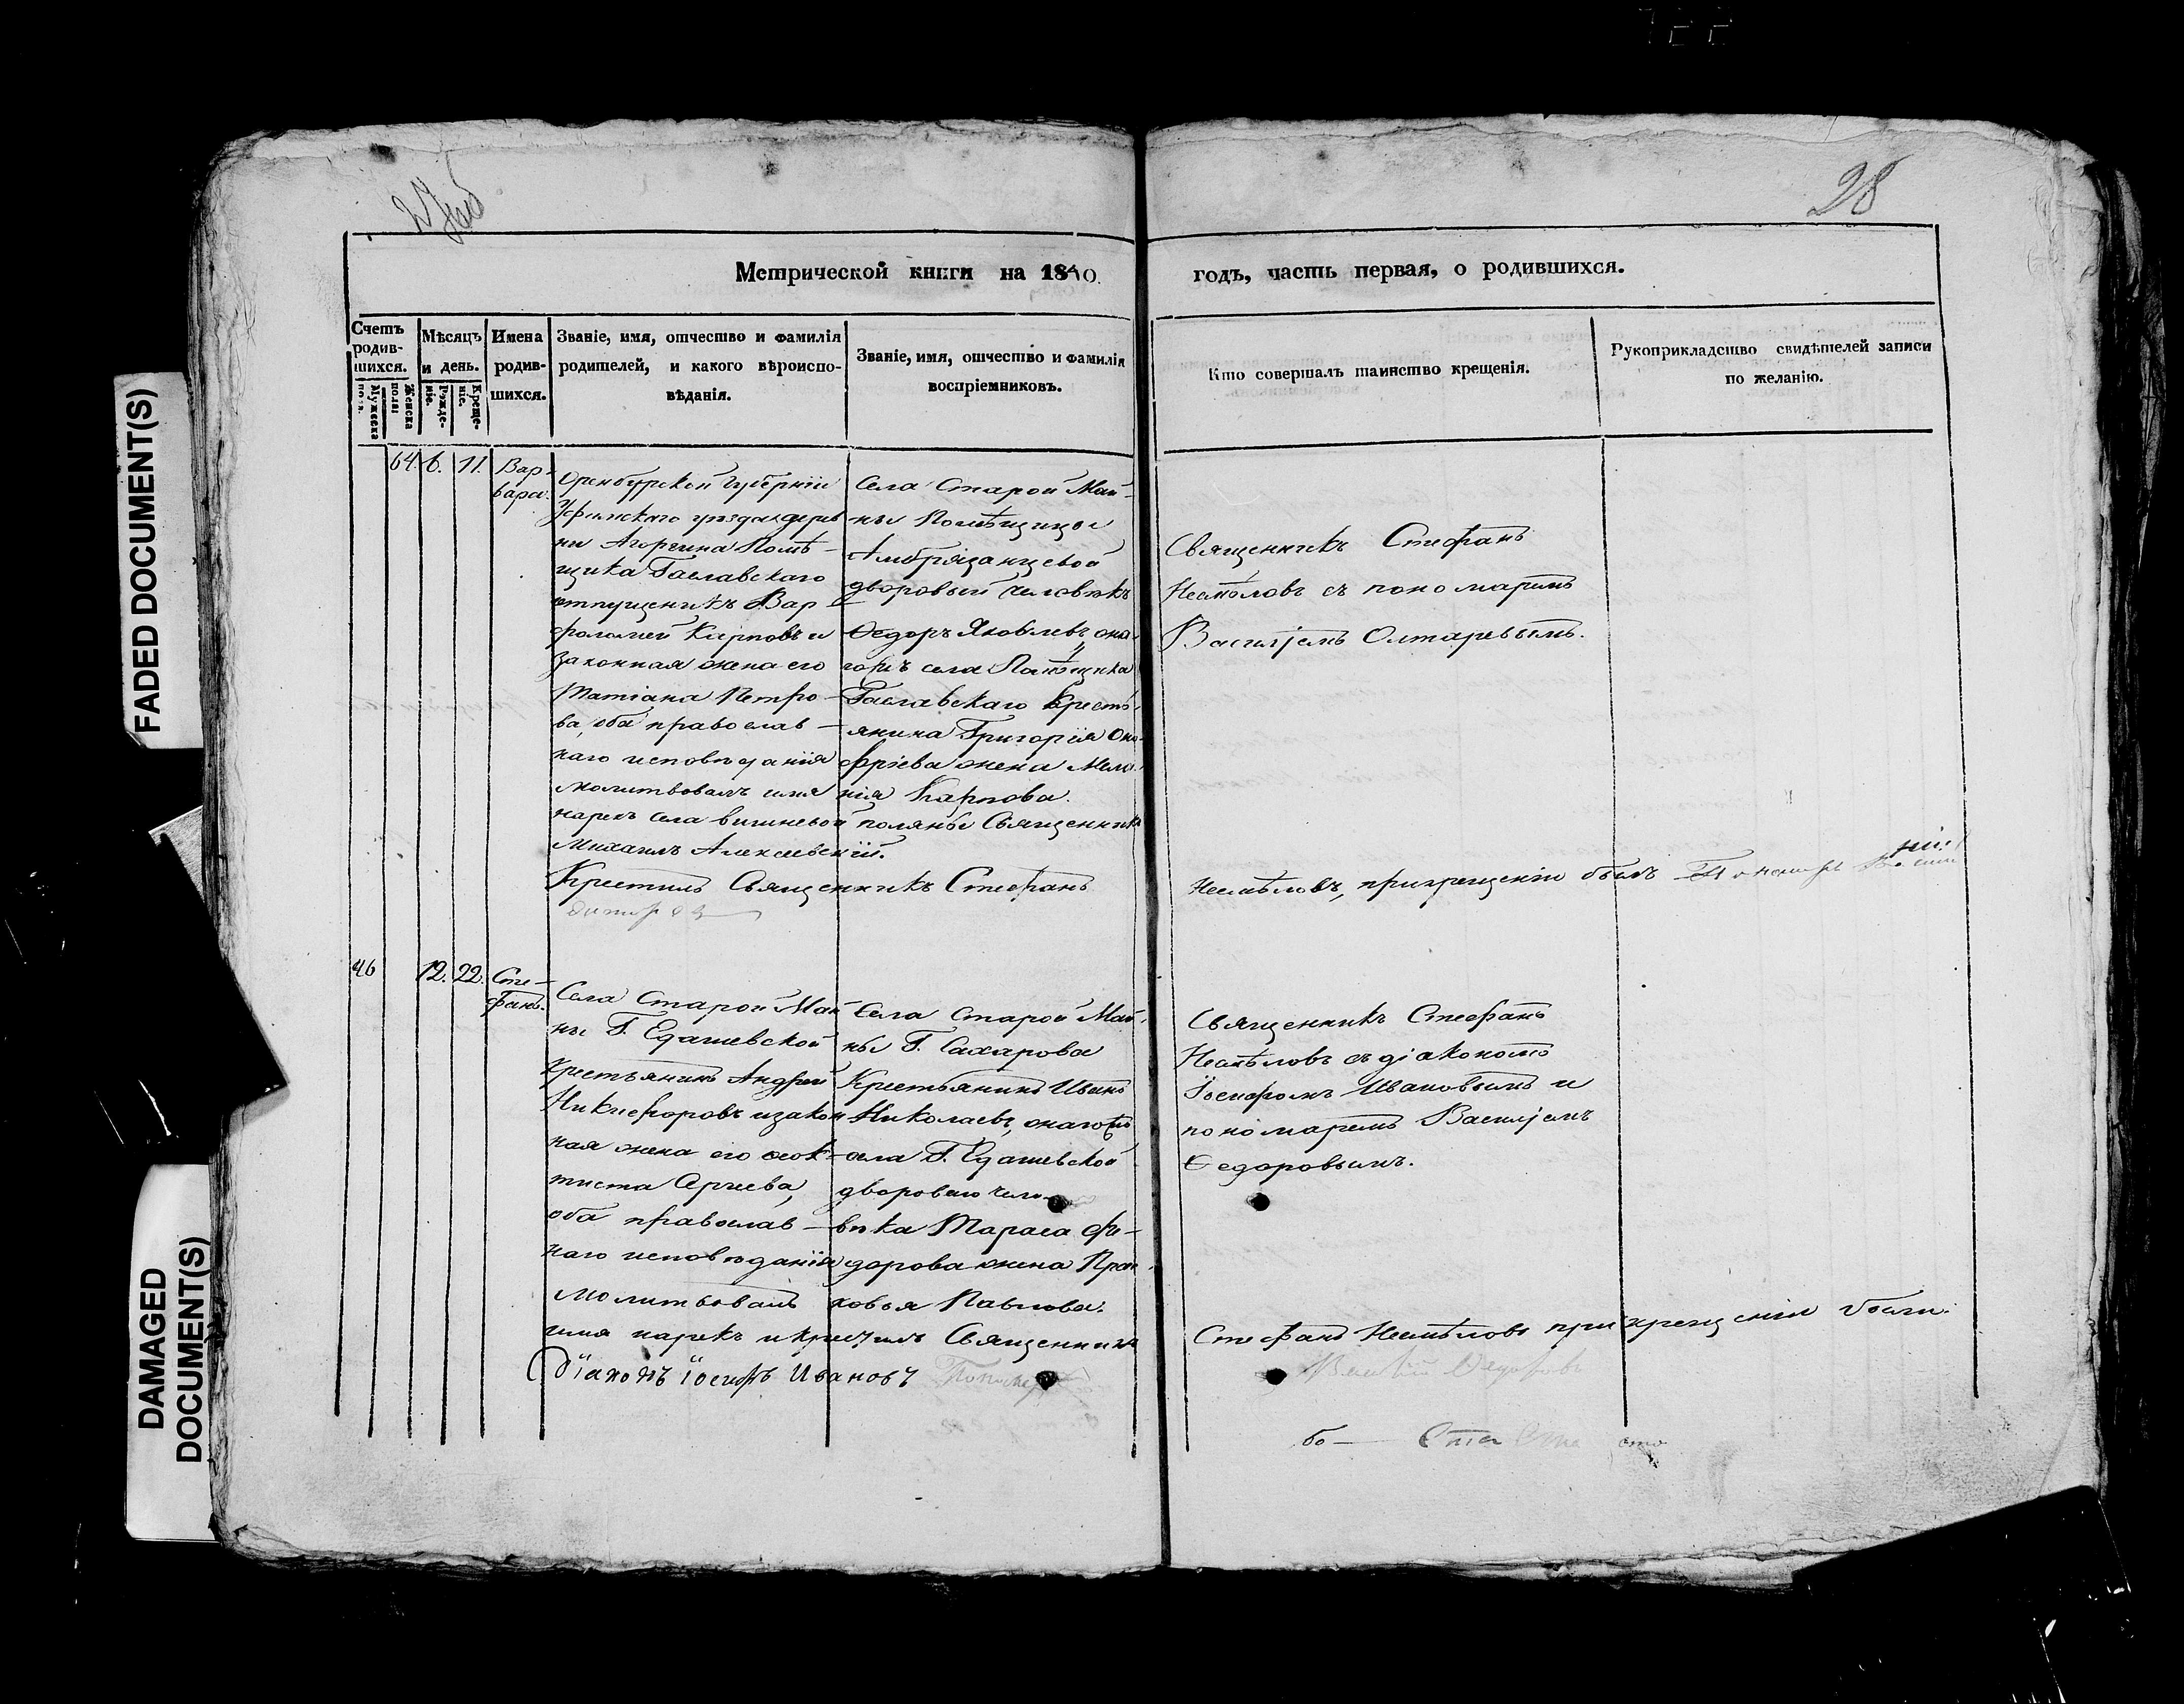 FADED DOCUMENT(S)
DAMAGED
DOCUMENT(S)
28
Метрической книги на 1840.
годъ, часть первая, о родившихся.
Счетъ
родив-
шихся.
Мужеска
пола.
Женска
пола.
Мѣсяцъ
и день.
Рожде-
ніе.
Креще-
ніе.
Имена
родив-
шихся.
Званіе, имя, отчество и фамилія
родителей, и какого вѣроиспо-
вѣданія.
Званіе, имя, отчество и фамилія
воспріемниковъ.
Кто совершалъ таинство крещенія.
Рукоприкладство свидѣтелей записи
по желанію.
64. 6. 11.
Вар-
вара.
Оренбургской Губерніи
Уфимскаго уѣзда дерев
ни Помѣ-
щика Гаславскаго
отпущеникъ Вар-
фоломей Карповъ и
законная жена его
Татіана Петро-
ва, оба православ-
наго исповѣданія
молитвовалъ имя
нарекъ села вишневой поляны Священникъ
Михаилъ Алексеевскій.
Крестилъ Священникъ Стефанъ
Села Старой Май-
ны Помѣщицы
Амбразанцевой
дворовый человѣкъ
Ѳедоръ Яковлевъ, она-
гожъ села Помѣщика
Гаславскаго Кресть-
янина Григорія Они-
фріева жена Мела-
нія Карпова.
Священникъ Стефанъ
Несмѣловъ съ пономаремъ
Василіемъ Олтаревымъ.
Несмѣловъ, прикрещеніи былъ Пономарь
46 12. 22.
Сте-
фанъ.
Села Старой Май
ны Г. Едашевской
Крестьянинъ Андрей
Никифоровъ изакон
ная жена его Ѳеок-
тиста Сергиева,
оба православ-
наго исповѣданія
Молитвовалъ
имя нарекъ икрестилъ Священникъ
Діаконъ Іосифъ Ивановъ Пономарь
Села Старой Май-
ны Г. Сахарова
Крестьянинъ Иванъ
Николаевъ, онагожъ
села Г. Едашевской
двороваго чело-
вѣка Тараса Фе-
дорова жена Прас-
ковья Павлова.
Священникъ Стефанъ
Несмѣловъ съ діакономъ
Іосифомъ Ивановымъ и
пономаремъ Василіемъ
Ѳедоровымъ.
Стефанъ Несмѣловъ прикрещеніи были:
Василій Ѳедоровъ